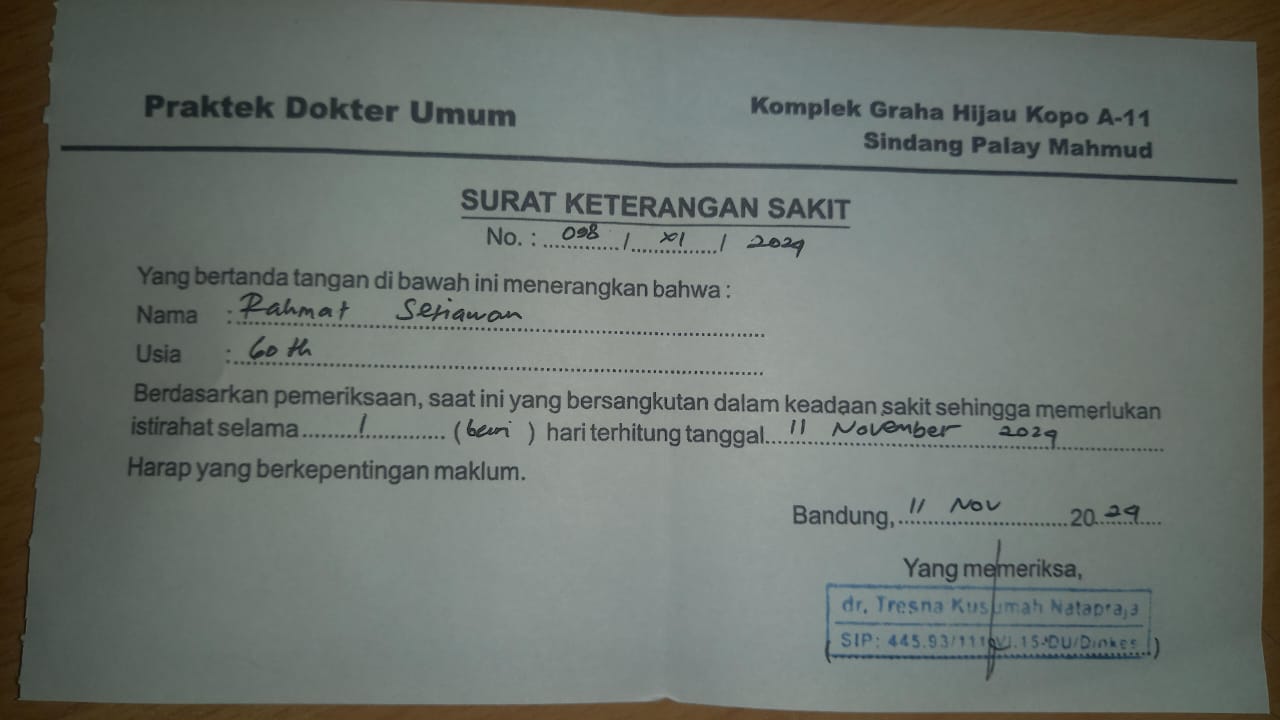 Praktek Dokter Umum
Komplek Graha Hijau Kopo A-11
Sindang Palay Mahmud
SURAT KETERANGAN SAKIT
No. : 098 / XI / 2024
Yang bertanda tangan di bawah ini menerangkan bahwa :
Nama : Rahmat Setiawan
Usia : 60 th
Berdasarkan pemeriksaan, saat ini yang bersangkutan dalam keadaan sakit sehingga memerlukan
istirahat selama 1 ( ) hari terhitung tanggal 11 November 2024
Harap yang berkepentingan maklum.
Bandung, 11 Nov 2024
Yang memeriksa,
dr. Tresna Kusumah Natapraja
SIP: 445.93/111